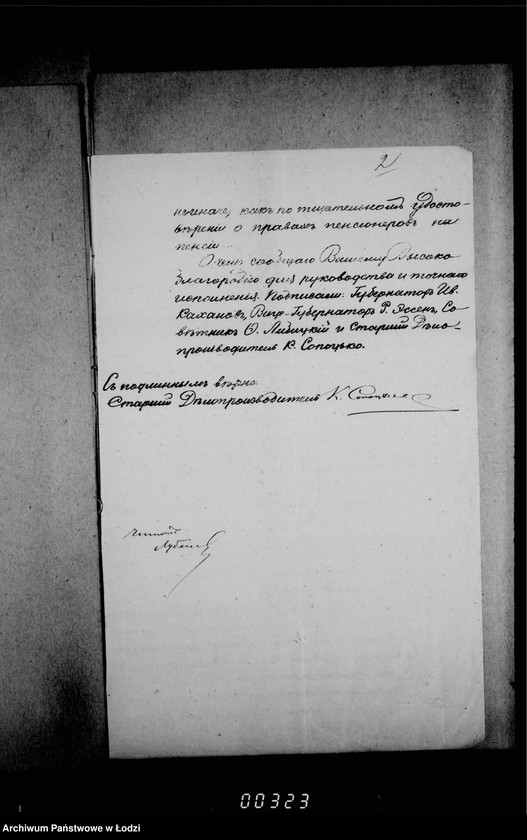 2
не иначе, какъ по тщательномъ удосто-
вѣреніи о правахъ пенсіонеровъ на
пенсіи.
О чемъ сообщаю Вашему Высоко
благородію для руководства и точнаго
исполненія. Подписали: Губернаторъ Ив.
Кахановъ, Вице-Губернаторъ Р. Эссенъ, Со
вѣтникъ Ѳ. Ливицкій и Старшій Дѣло-
производитель К. Сопоцько.
Съ подлиннымъ вѣрно:
Старшій Дѣлопроизводитель К. Сопоцько
00323
Archiwum Państwowe w Łodzi